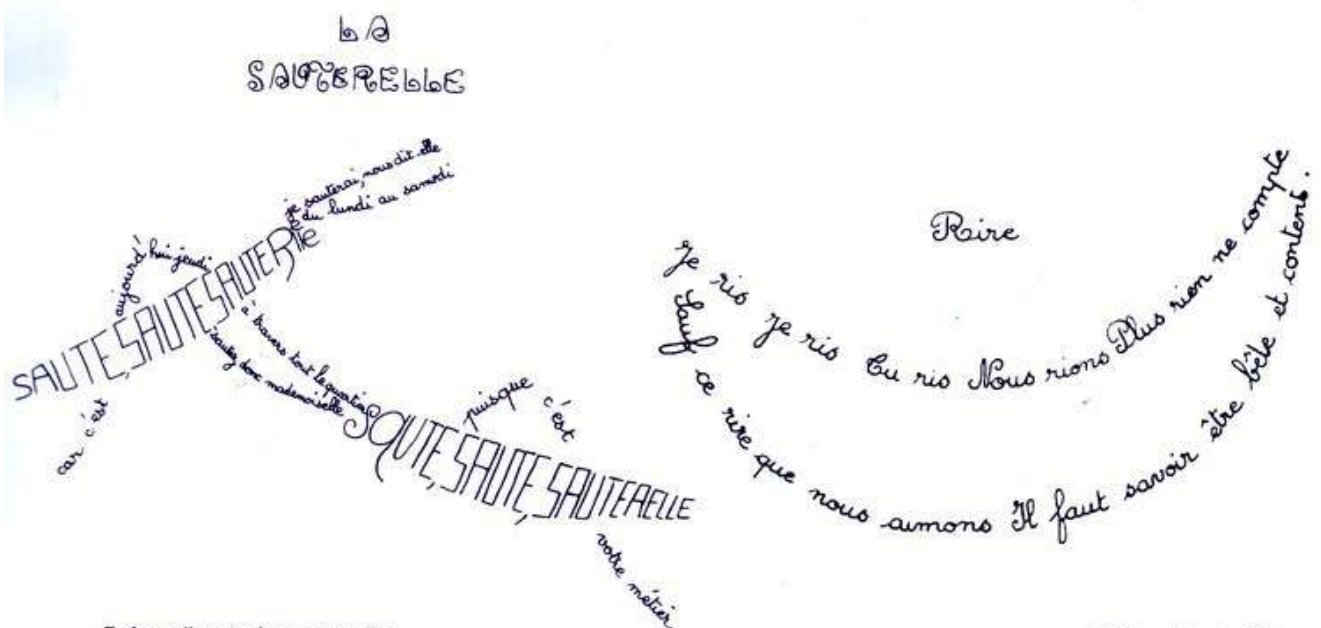 LA
SAUTERELLE
SAUTE, SAUTE, SAUTERELLE
car c'est
aujourd'hui jeudi
je sauterai, nous dit-elle
du lundi au samedi
à travers tout le quartier
sautez donc mademoiselle
SAUTE, SAUTE, SAUTERELLE
puisque c'est
votre métier
Rire
Je ris Je ris Tu ris Nous rions Plus rien ne compte
Sauf ce rire que nous aimons Il faut savoir être bête et content.